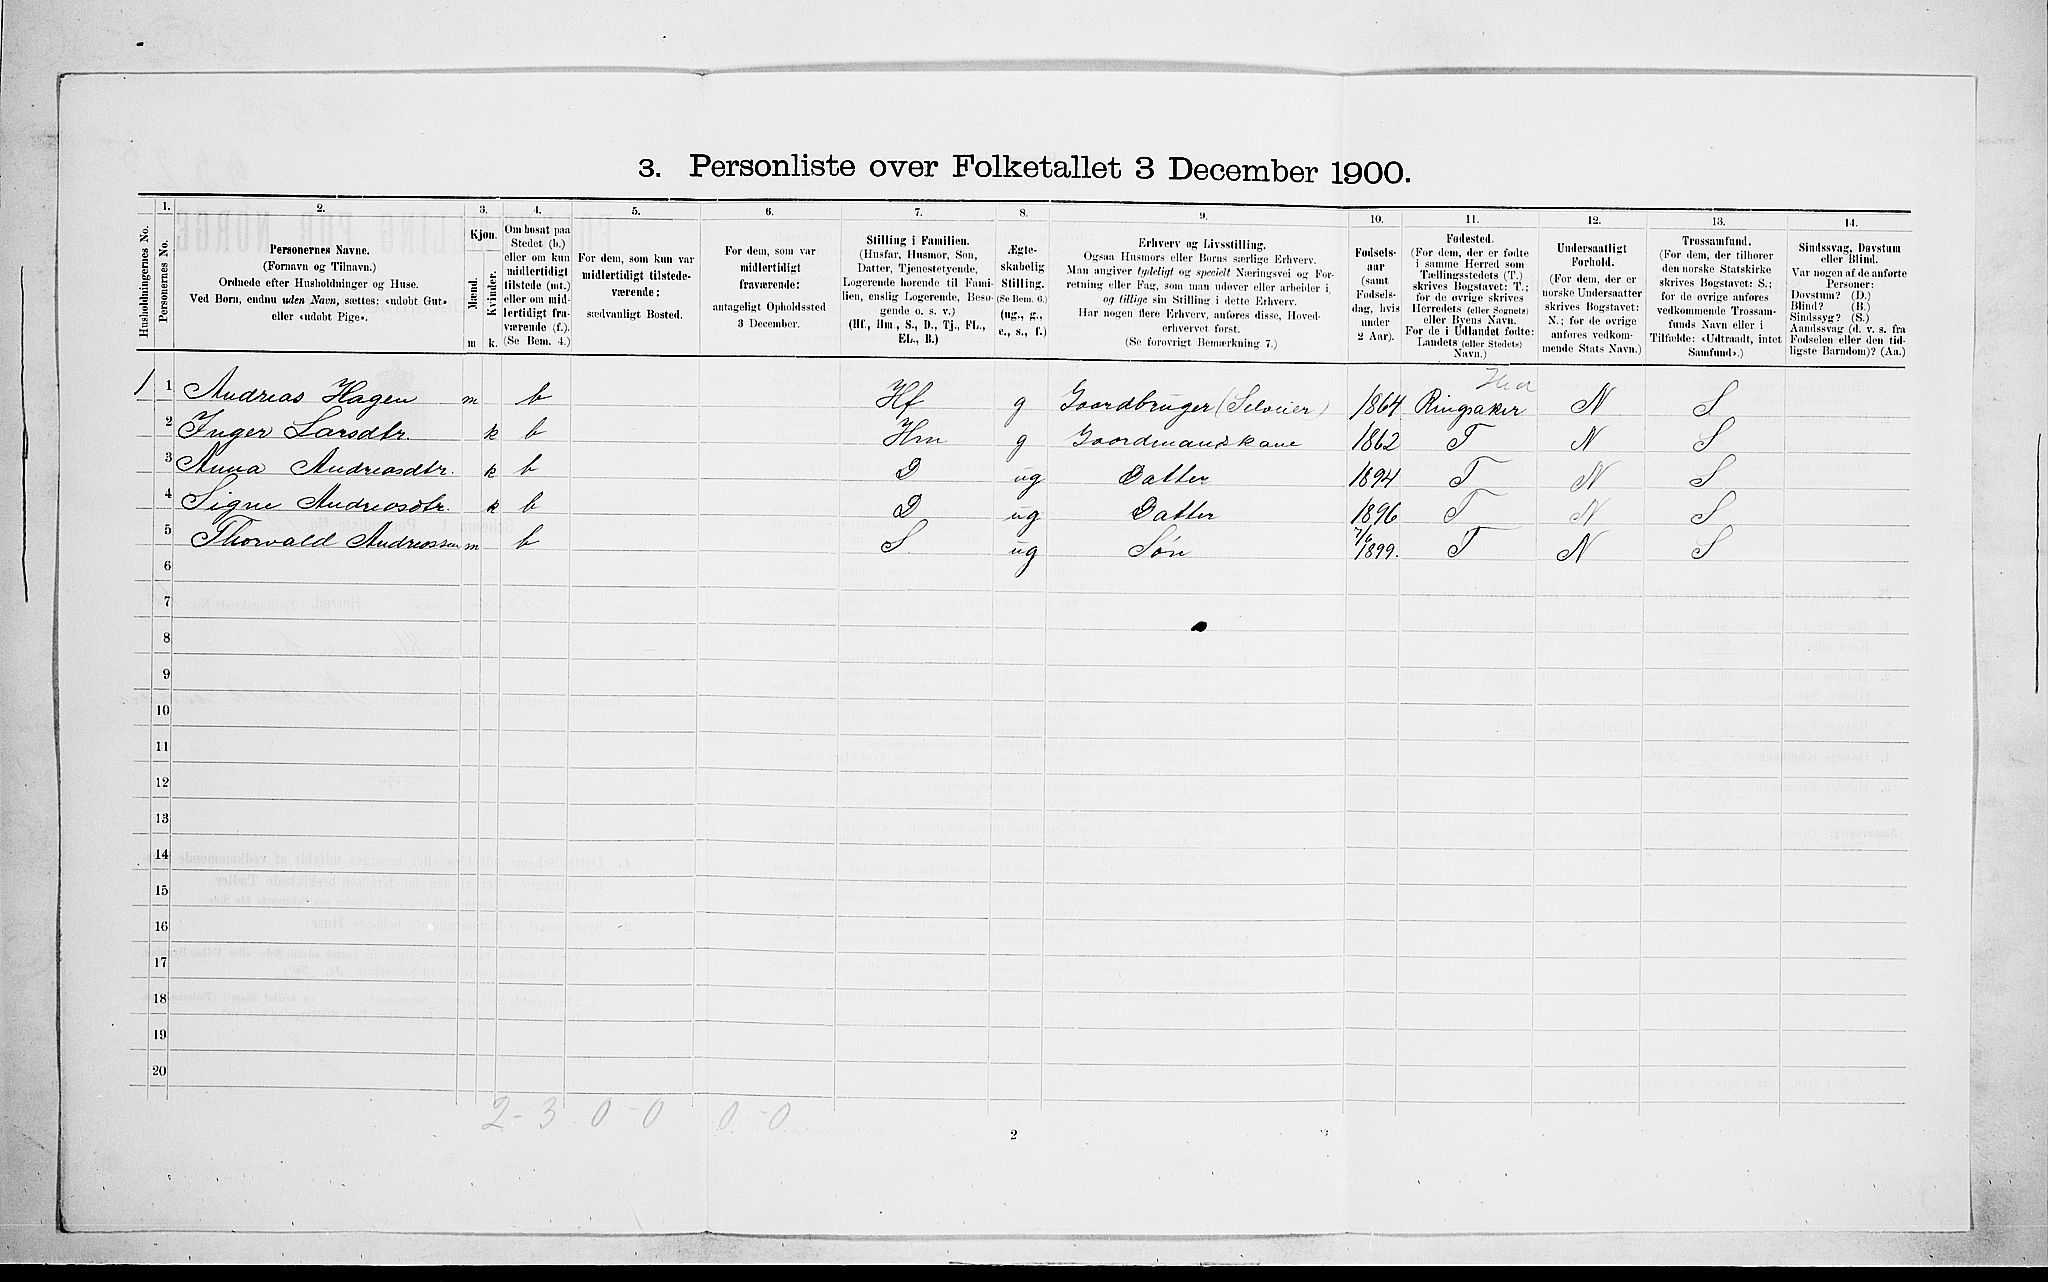 3. Personliste over Folketallet 3 December 1900.
1. 2. 3. 4. 5. 6. 7. 8. 9. 10. 11. 12. 13. 14.
Husholdningernes No.
Personernes No.
Personernes Navne.
(Fornavn og Tilnavn.)
Ordnede efter Husholdninger og Huse.
Ved Børn, endnu uden Navn, sættes: «udøbt Gut»
eller «udøbt Pige».
Kjøn.
Mænd. m
Kvinder. k.
Om bosat paa
Stedet (b.)
eller om kun
midlertidigt
tilstede (mt.)
eller om mid-
lertidigt fra-
værende (f.).
(Se Bem. 4.)
For dem, som kun var
midlertidigt tilstede-
værende:
sædvanligt Bosted.
For dem, som var
midlertidigt
fraværende:
antageligt Opholdssted
3 December.
Stilling i Familien.
(Husfar, Husmor, Søn,
Datter, Tjenestetyende,
Logerende hørende til Fami-
lien, enslig Logerende, Besø-
gende o. s. v.)
(Hf., Hm., S., D., Tj., FL.,
EL., B.)
Ægte-
skabelig
Stilling.
(Se Bem. 6.)
(ug., g.,
e., s., f.)
Erhverv og Livsstilling.
Ogsaa Husmors eller Børns særlige Erhverv.
Man angiver tydeligt og specielt Næringsvei og For-
retning eller Fag, som man udøver eller arbeider i,
og tillige sin Stilling i dette Erhverv.
Har nogen flere Erhverv, anføres disse, Hoved-
erhvervet først.
(Se forøvrigt Bemærkning 7.)
Fødsels-
aar
(samt
Fødsels-
dag, hvis
under
2 Aar).
Fødested.
(For dem, der er fødte
i samme Herred som
Tællingsstedets (T.)
skrives Bogstavet: T.;
for de øvrige skrives
Herredets (eller Sognets)
eller Byens Navn.
For de i Udlandet fødte:
Landets (eller Stedets)
Navn.)
Undersaatligt
Forhold.
(For dem, der er
norske Undersaatter
skrives Bogstavet:
N.; for de øvrige
anføres vedkom-
mende Stats Navn.)
Trossamfund.
(For dem, der tilhører
den norske Statskirke
skrives Bogstavet: S.;
for de øvrige anføres
vedkommende Trossam-
funds Navn eller i
Tilfælde: «Udtraadt, intet
Samfund».)
Sindssvag, Døvstum
eller Blind.
Var nogen af de anførte
Personer:
Døvstum? (D.)
Blind? (B.)
Sindssyg? (S.)
Aandssvag (d. v. s. fra
Fødselen eller den tid-
ligste Barndom)? (Aa.)
1 1 Andreas Hagen m b Hf g Gaardbruger (Selveier) 1864 Ringsaker N S
2 Inger Larsdtr. k b Hm g Gaardmandskone 1862 T N S
3 Anna Andreasdtr. k b D ug Datter 1894 T N S
4 Signe Andreasdtr. k b D ug Datter 1896 T N S
5 Thorvald Andreassen m b S ug Søn 7/6 1899. T N S
6
7
8
9
10
11
12
13
14
15
16
17
18
19
20
2-3 0-0 0-0
2